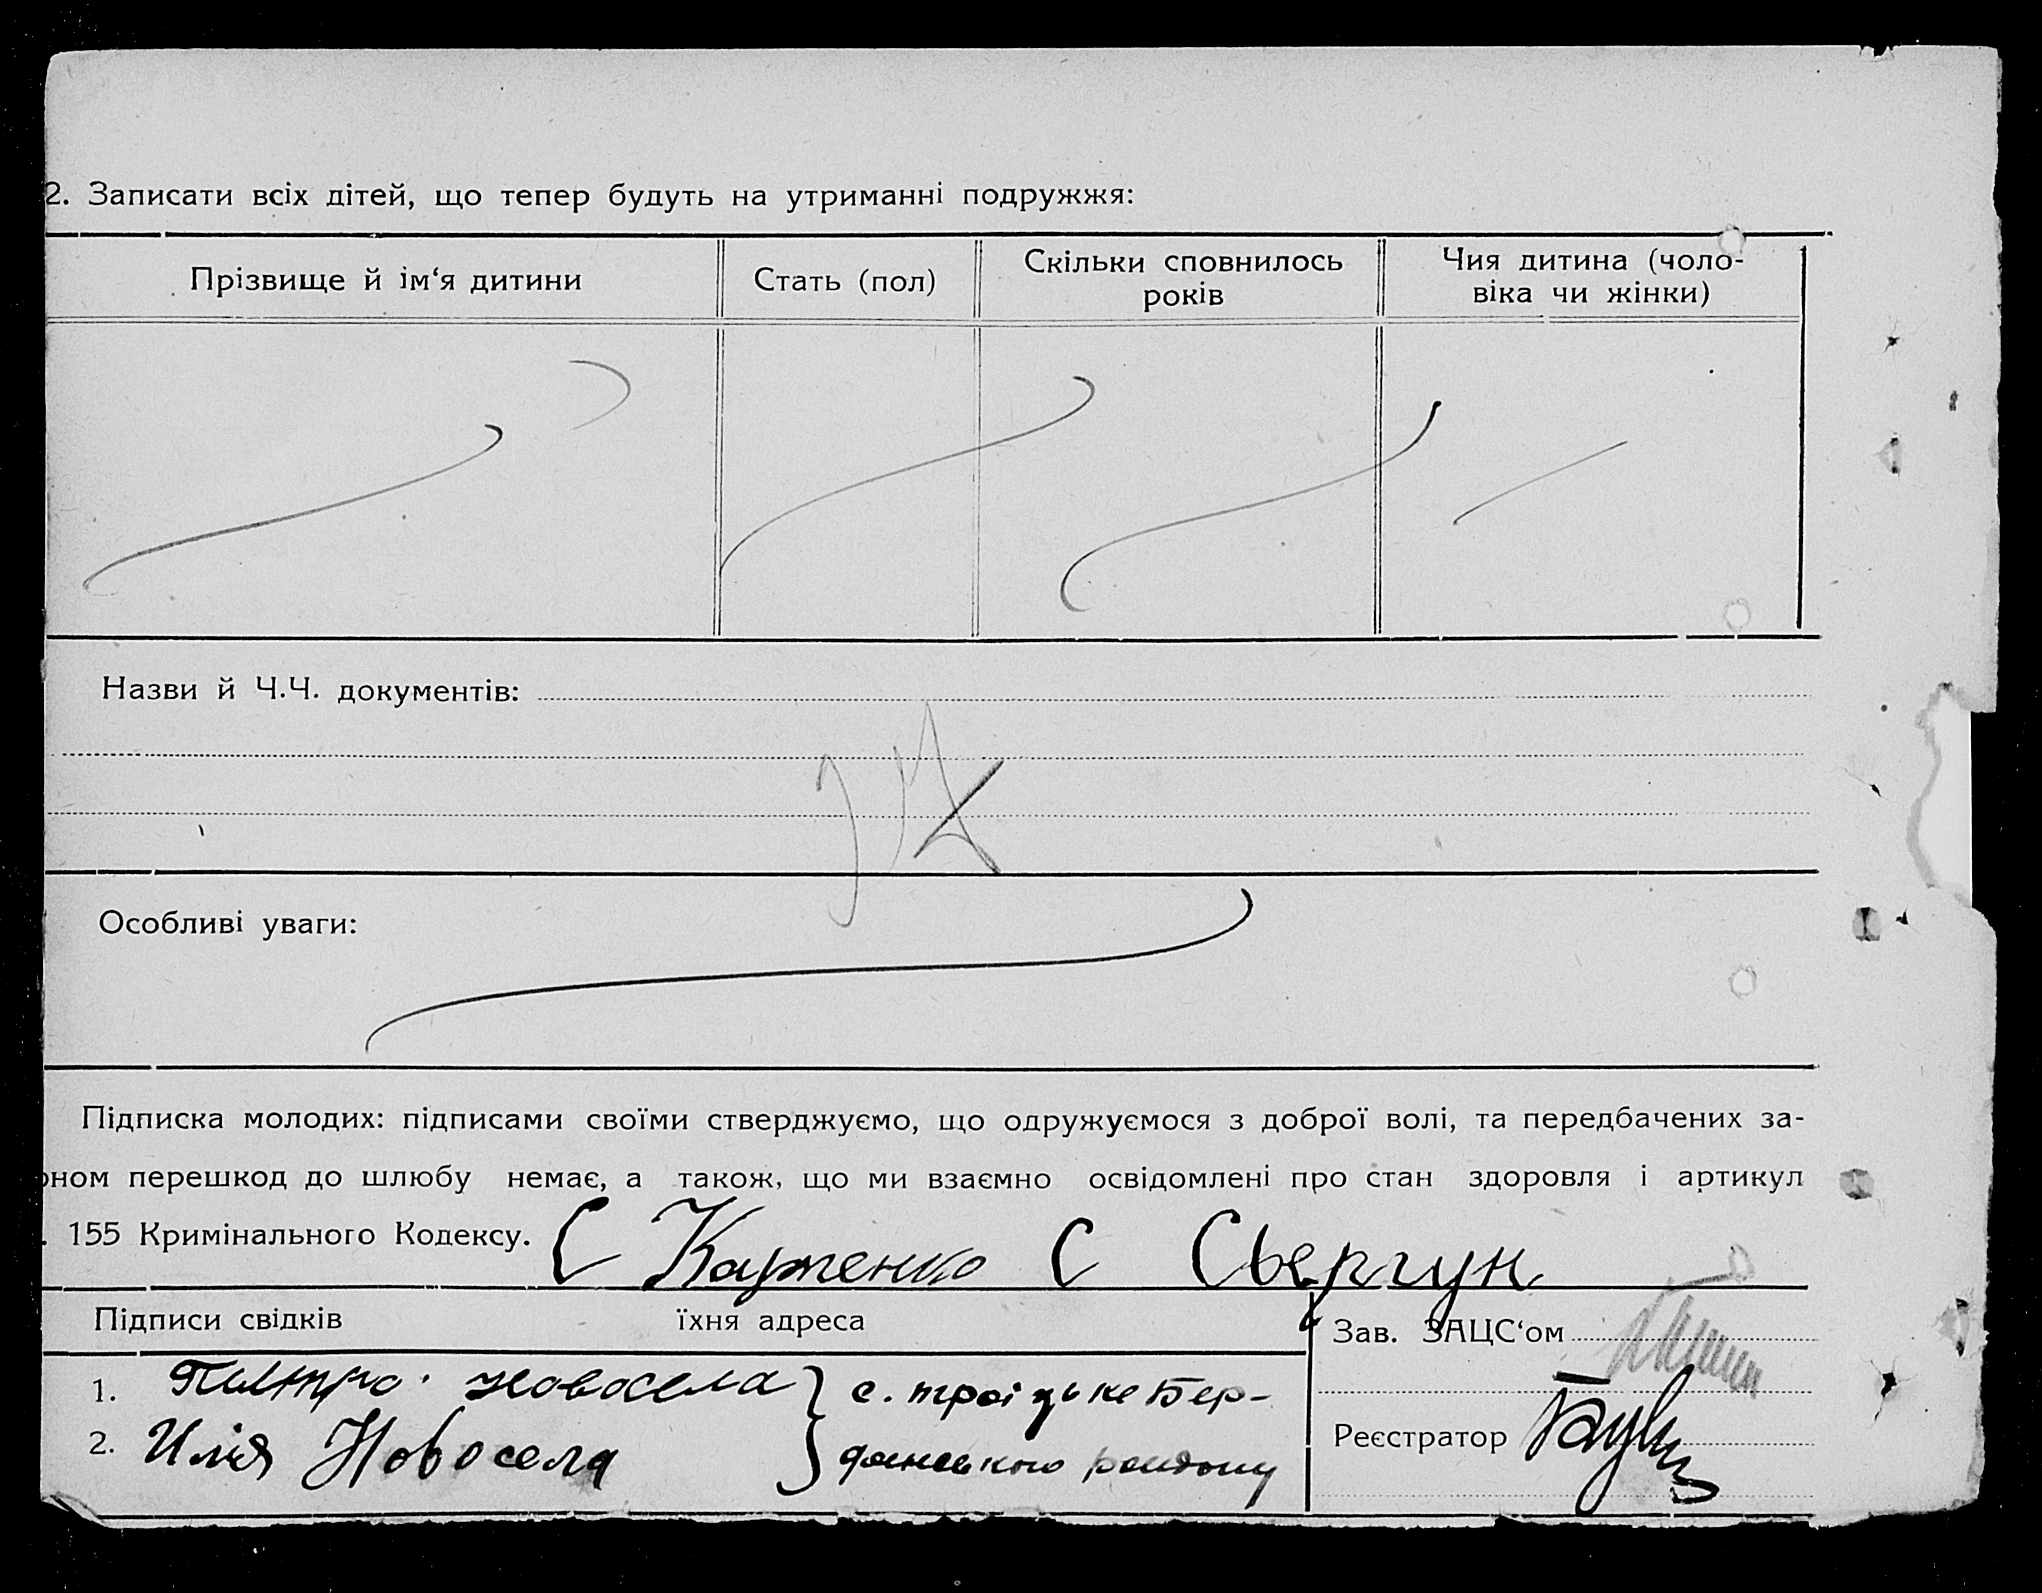 2. Записати всіх дітей, що тепер будуть на утриманні подружжя:
Прізвище й ім‘я дитини
Стать (пол)
Скільки сповнилось
років
Чия дитина (чоло-
віка чи жінки)
Назви й Ч.Ч. документів:
Особливі уваги:
Підписка молодих: підписами своїми стверджуємо, що одружуємося з доброї волі, та передбачених за-
оном перешкод до шлюбу немає, а також, що ми взаємно освідомлені про стан здоровля і артикул
. 155 Кримінального Кодексу. С Карпенко С Сьергун
Підписи свідків їхня адреса
Зав. ЗАЦС‘ом
1. Новосела с. троїцьке Бер-
2. Илія Новосела данського району
Реєстратор